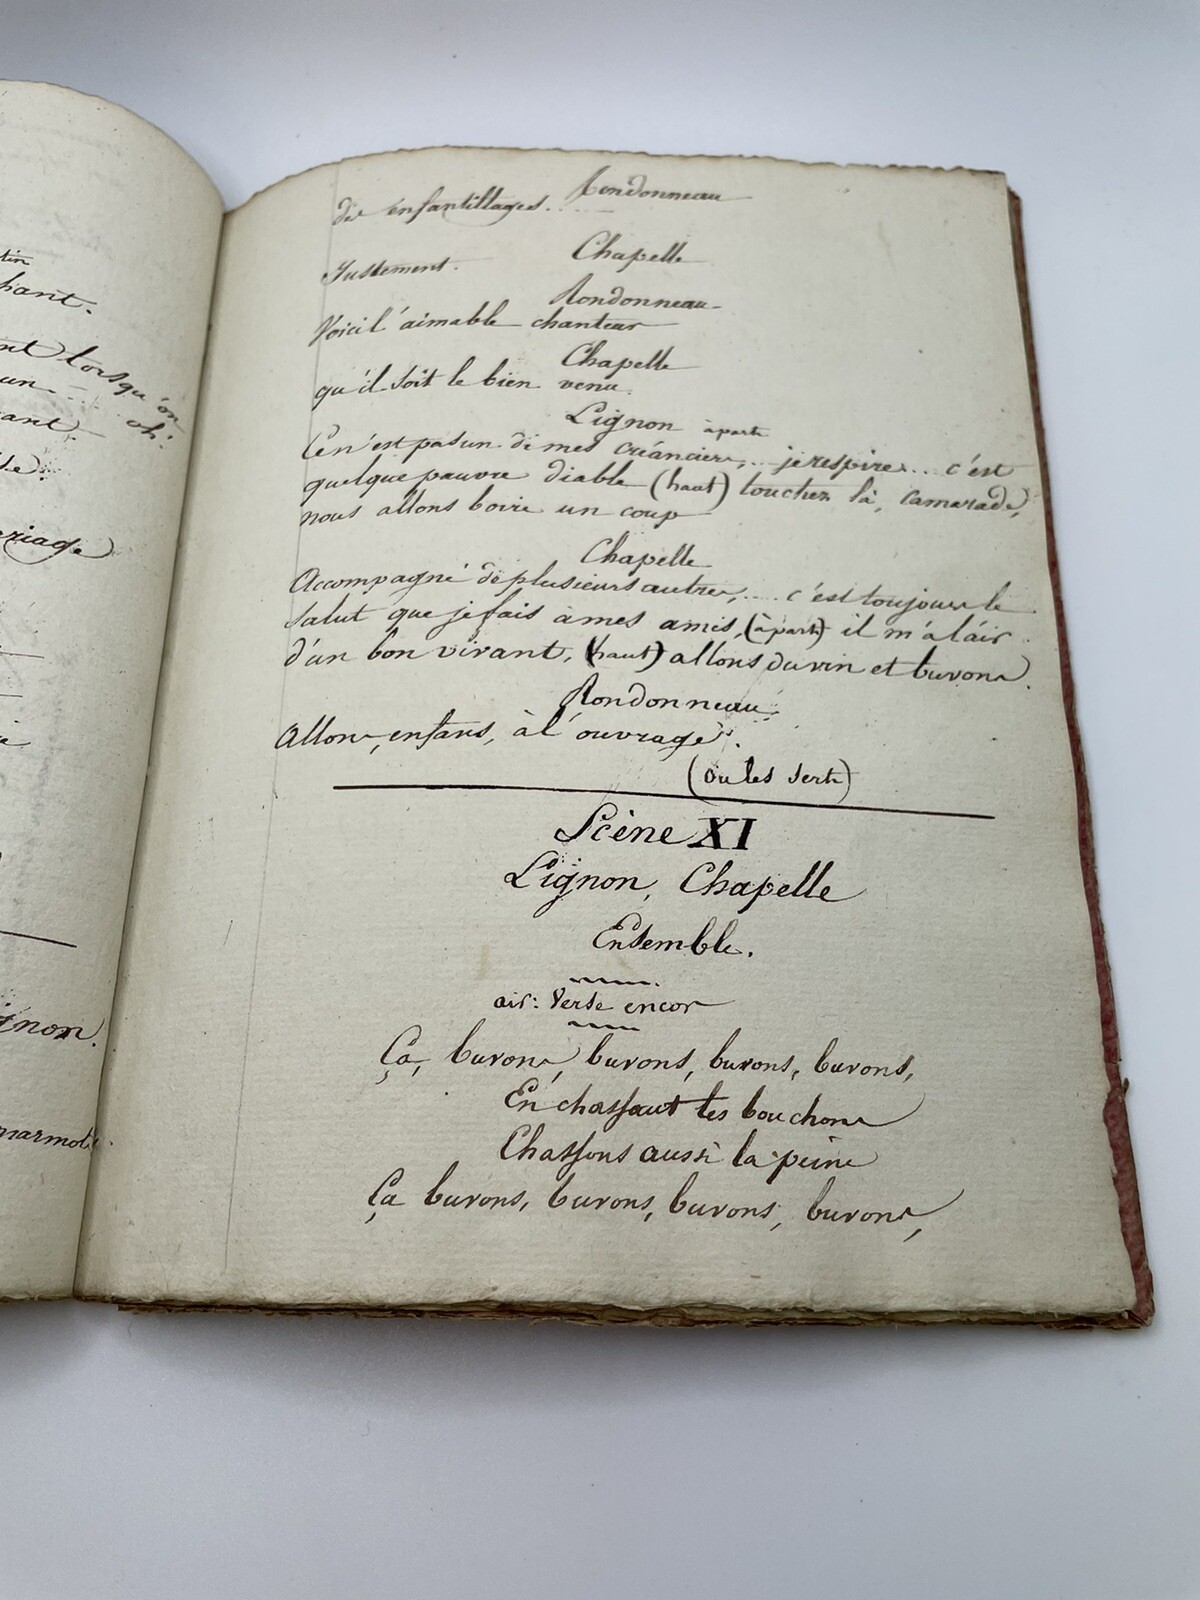 tin
hant.
nt lorsqu'on
un .... oh!
ant.
riage
gnon.
marmot
Rondonneau
des enfantillages.....
Chapelle
Justement.
Rondonneau
Voici l'aimable chanteur
Chapelle
qu'il soit le bien venu.
Lignon à part
Ce n'est pas un de mes créanciers,... je respire... c'est
quelque pauvre diable (haut) touchez là, camarade,
nous allons boire un coup
Chapelle
Accompagné de plusieurs autres,.... c'est toujours le
salut que je fais à mes amis, (à part) il m'a l'air
d'un bon vivant, (haut) allons du vin et buvons.
Rondonneau
Allons, enfans, à l'ouvrage.
(on les sert)
Scène XI
Lignon, Chapelle
Ensemble.
air: Verse encor
Ça, buvons, buvons, buvons, buvons,
En chassant les bouchons
Chassons aussi la peine
Ça buvons, buvons, buvons, buvons,